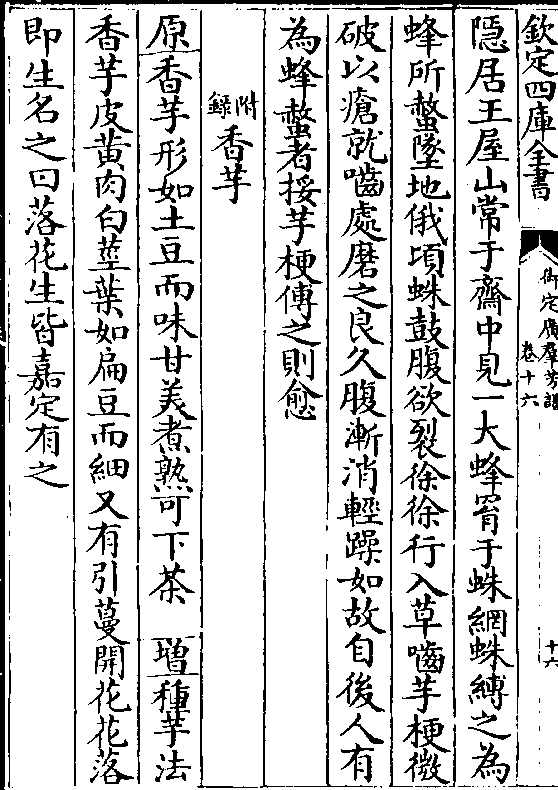 欽定四庫全書
御定廣羣芳譜
卷十六
十六
隱居王屋山常于齋中見一大蜂罥于蛛網蛛縛之為
蜂所螫墜地俄頃蛛鼓腹欲裂徐徐行入草嚙芋梗微
破以瘡就嚙處磨之良久腹漸消輕躁如故自後人有
為蜂螫者挼芋梗傅之則愈
附錄
香芋
原香芋形如土豆而味甘美煮熟可下茶 增種芋法
香芋皮黄肉白莖葉如扁豆而細又有引蔓開花花落
即生名之曰落花生皆嘉定有之